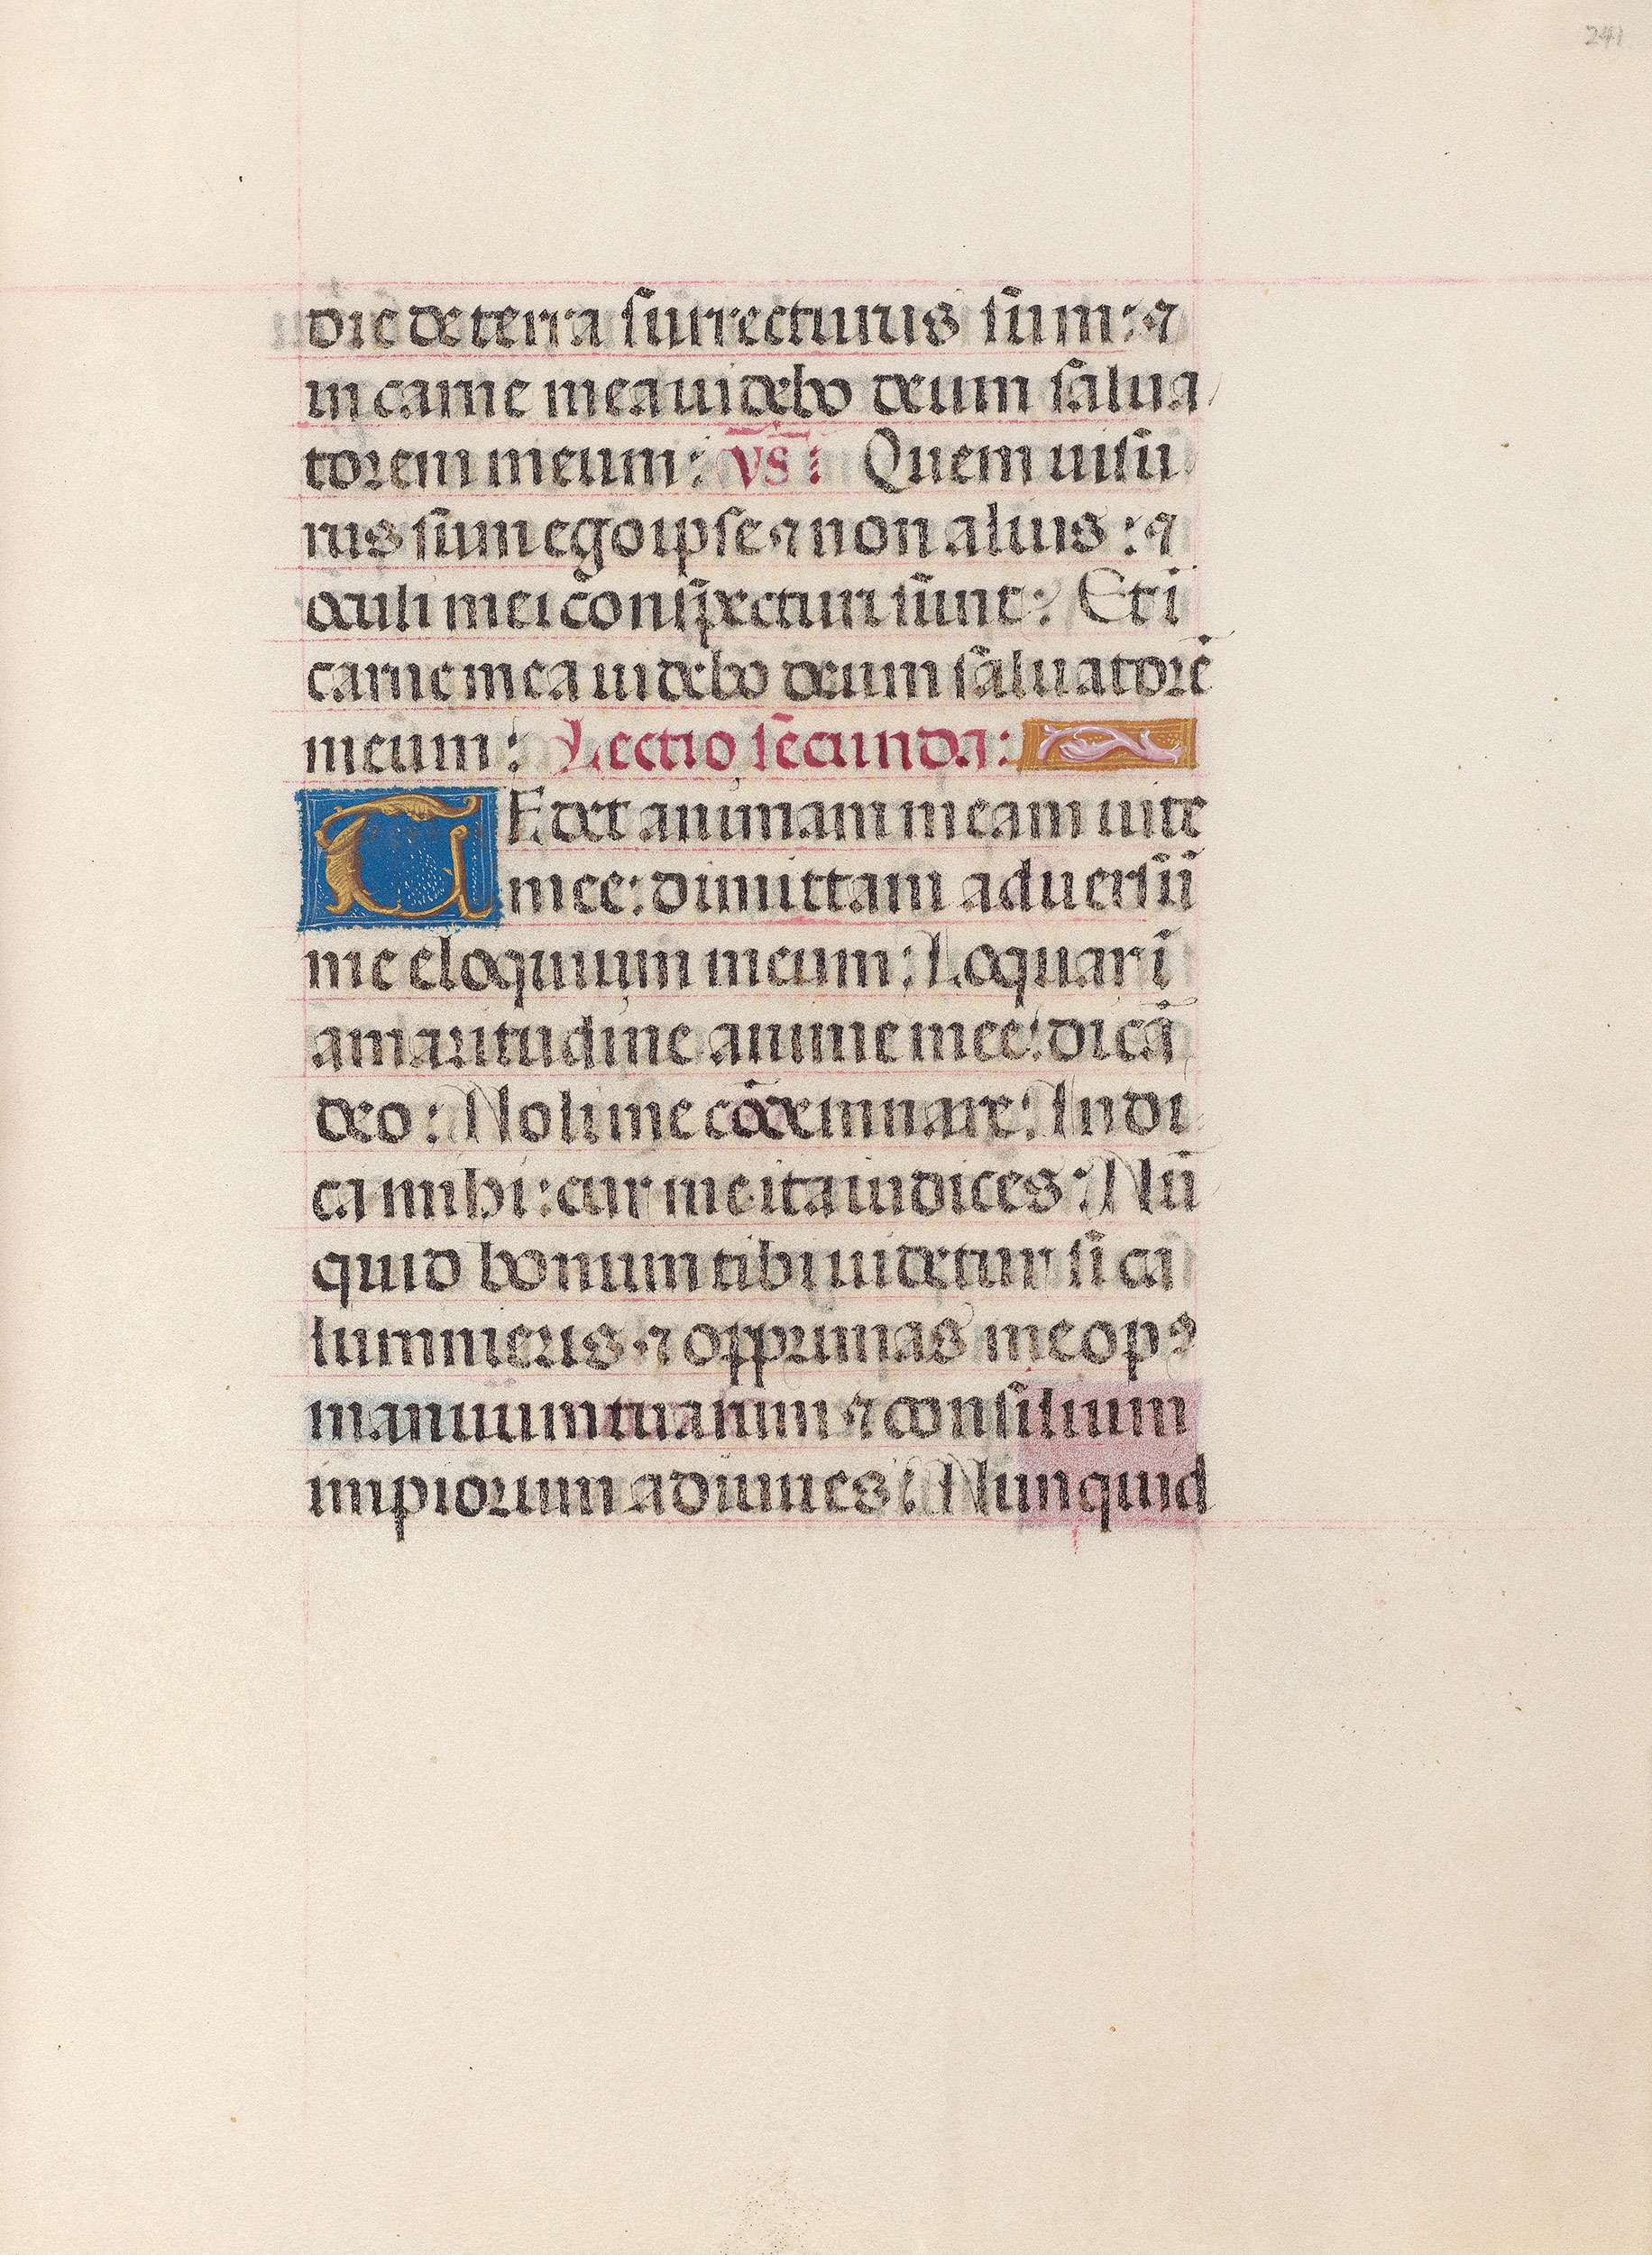 241
die de terra surrecturus sum: ⁊
in carne mea uidebo deum salua
torem meum: vs: Quem uisu
rus sum ego ipse ⁊ non alius: ⁊
oculi mei conspecturi sunt: Et ī
carne mea uidebo deum saluatorē
meum: Lectio secunda:
TEdet animam meam uite
mee: dimittam aduersū
me eloquium meum: Loquar ī
amaritudine anime mee: dicā
deo: Noli me cōdemnare: Indi
ca mihi: cur me ita iudices: Nū
quid bonum tibi uidetur si ca
lumnieris ⁊ opprimas me opꝰ
manuum tuarum ⁊ consilium
impiorum adiuues: Nunquid